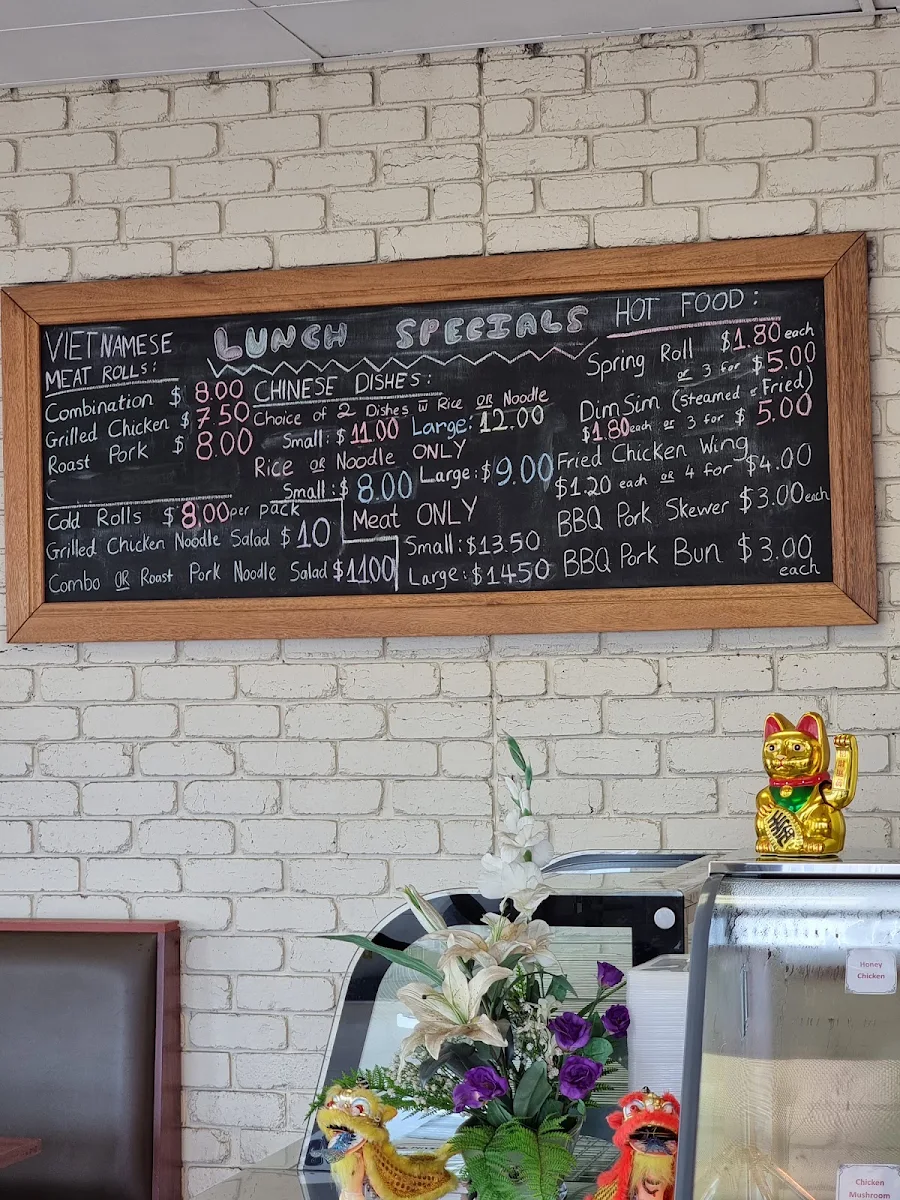 LUNCH SPECIALS
VIETNAMESE
MEAT ROLLS:
Combination $ 8.00
Grilled Chicken $ 7.50
Roast Pork $ 8.00
Cold Rolls $8.00 per pack
Grilled Chicken Noodle Salad $10
Combo OR Roast Pork Noodle Salad $1100
CHINESE DISHES:
Choice of 2 Dishes w Rice OR Noodle
Small: $ 11.00 Large: 12.00
Rice OR Noodle ONLY
Small: $ 8.00 Large: $ 9.00
Meat ONLY
Small: $13.50
Large: $1450
HOT FOOD:
Spring Roll $1.80 each
or 3 for $5.00
Dim Sim (steamed or Fried)
$1.80 each or 3 for $ 5.00
Fried Chicken Wing
$1.20 each OR 4 for $4.00
BBQ Pork Skewer $3.00 each
BBQ Pork Bun $3.00
each
Honey
Chicken
Chicken
Mushroom